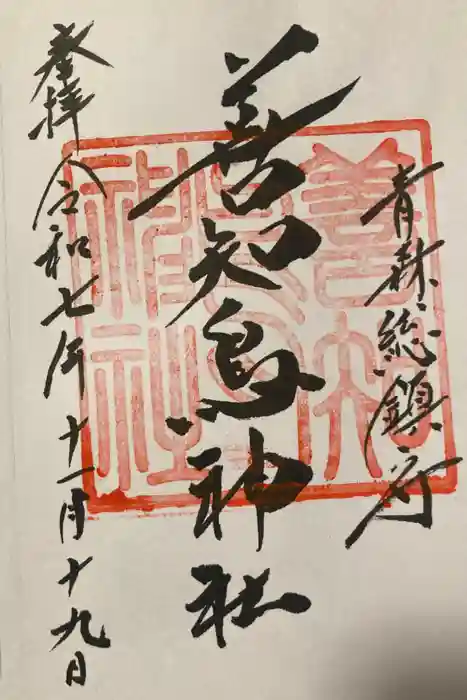 青森総鎮守
善知鳥神社
奉拝
令和七年十一月十九日
善知鳥神社